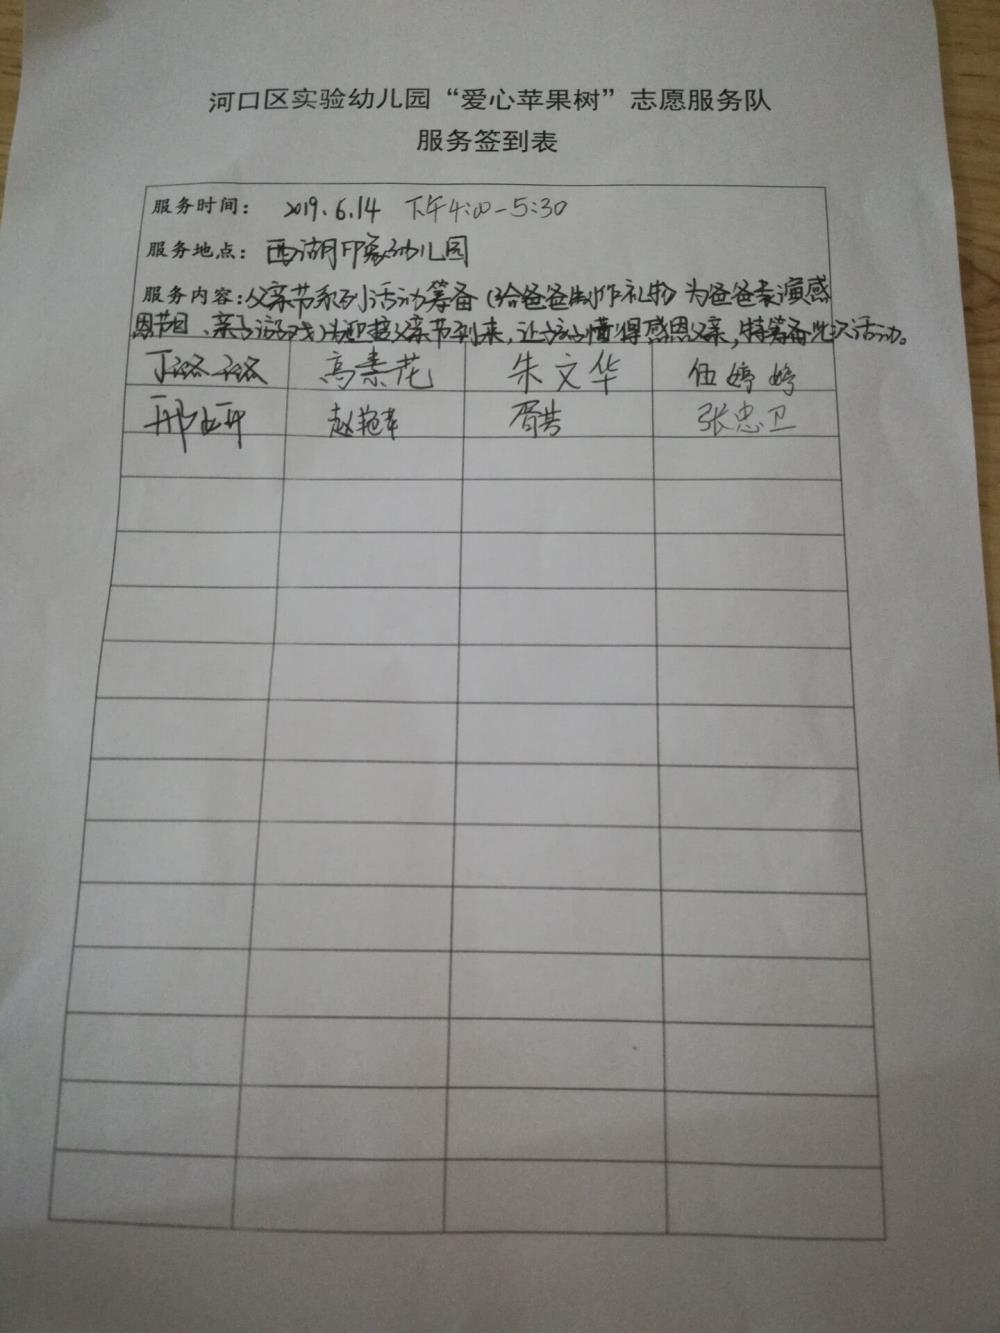 河口区实验幼儿园“爱心苹果树”志愿服务队
服务签到表
服务时间： 2019.6.14 下午4:00-5:30
服务地点： 西湖印象幼儿园
服务内容：父亲节系列活动筹备（给爸爸制作礼物）为爸爸表演感
恩节目、亲子游戏）为迎接父亲节到来，让孩子懂得感恩父亲，特筹备此次活动。
丁璐璐 高素花 朱文华 伍婷婷
邢 赵艳 胥芸 张忠卫